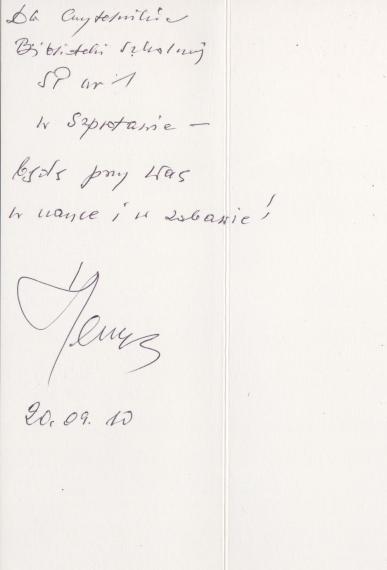 Dla Czytelników
Biblioteki Szkolnej
SP nr 1
w Szprotawie –
będę przy Was
w nauce i w zabawie!
20.09.10